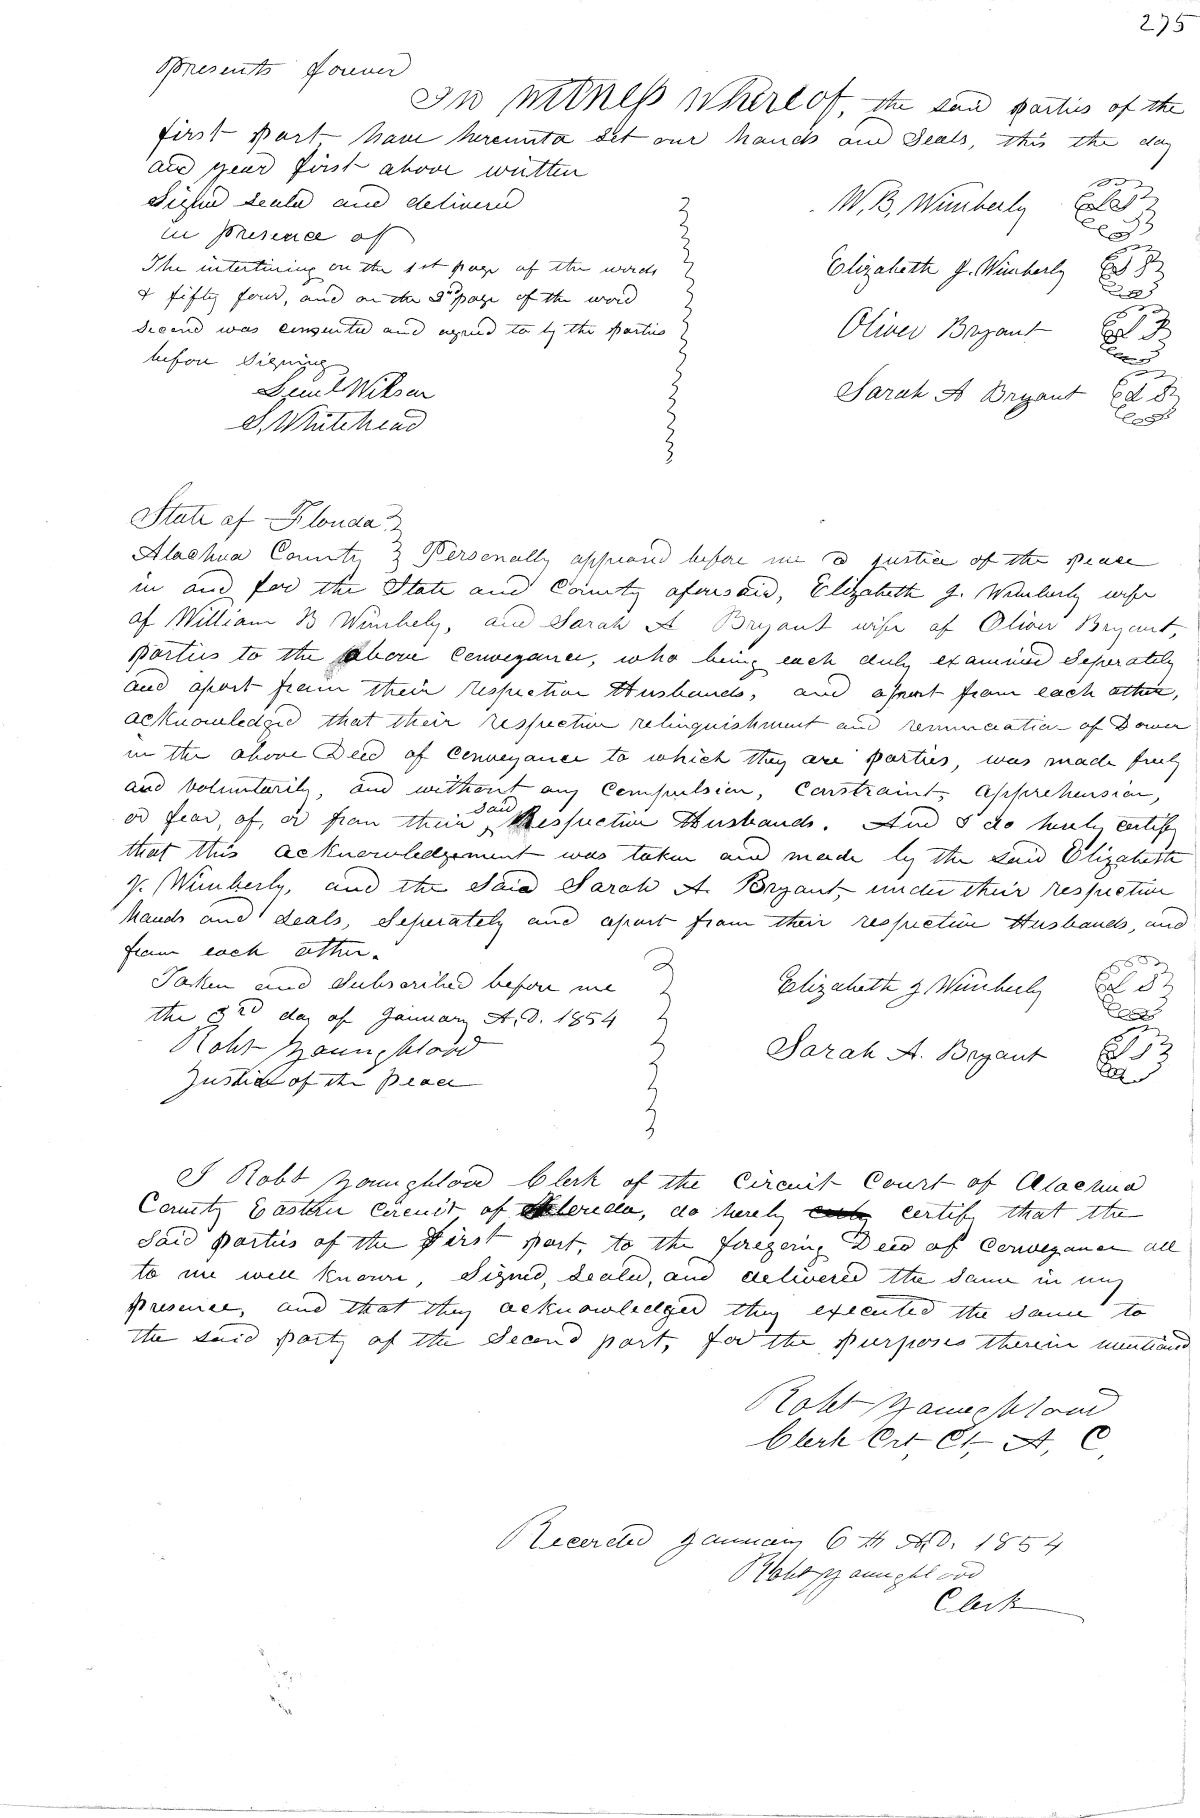 275
presents forever
In witness whereof, the said parties of the
first part have hereunto set our hands and Seals, this the day
and year first above written
Signed sealed and delivered
in presence of
The interlining on the 1st page of the words
& fifty four, and on the 3rd page of the word
Second was consented and agreed to by the parties
before signing
Leml Wilson
S. Whitehead
W. B. Wimberly LS
Elizabeth J. Wimberly LS
Oliver Bryant LS
Sarah A Bryant LS
State of Florida
Alachua County Personally appeared before me a justice of the peace
in and for the State and County aforesaid, Elizabeth J. Wimberly wife
of William B Wimbely, and Sarah A Bryant wife of Oliver Bryant,
parties to the above Conveyance, who being each duly examined Seperately
and apart from their respective Husbands, and apart from each other,
acknowledged that their respective relinquishment and renunciation of Dower
in the above Deed of Conveyance to which they are parties, was made freely
and voluntarily, and without any Compulsion, Constraint, apprehension,
or fear, of, or from their said Respective Husbands. And I do hereby certify
that this acknowledgement was taken and made by the said Elizabeth
J. Wimberly, and the Said Sarah A. Bryant, under their respective
hands and Seals, Seperately and apart from their respective Husbands, and
from each other.
Taken and Subscribed before me
the 3rd day of January A.D. 1854
Robt Youngblood
Justice of the Peace
Elizabeth J Wimberly LS
Sarah A. Bryant LS
I Robt Youngblood Clerk of the Circuit Court of Alachua
County Eastern Circuit of Florida, do hereby certify that the
Said parties of the First part, to the foregoing Deed of Conveyance all
to me well known, Signed, Sealed, and delivered the Same in my
presence, and that they acknowledged they executed the same to
the said party of the Second part, for the purposes therein mentioned
Robt Youngblood
Clerk Crt, Ct, A, C,
Recorded January 6th A.D. 1854
Robt Youngblood
Clerk